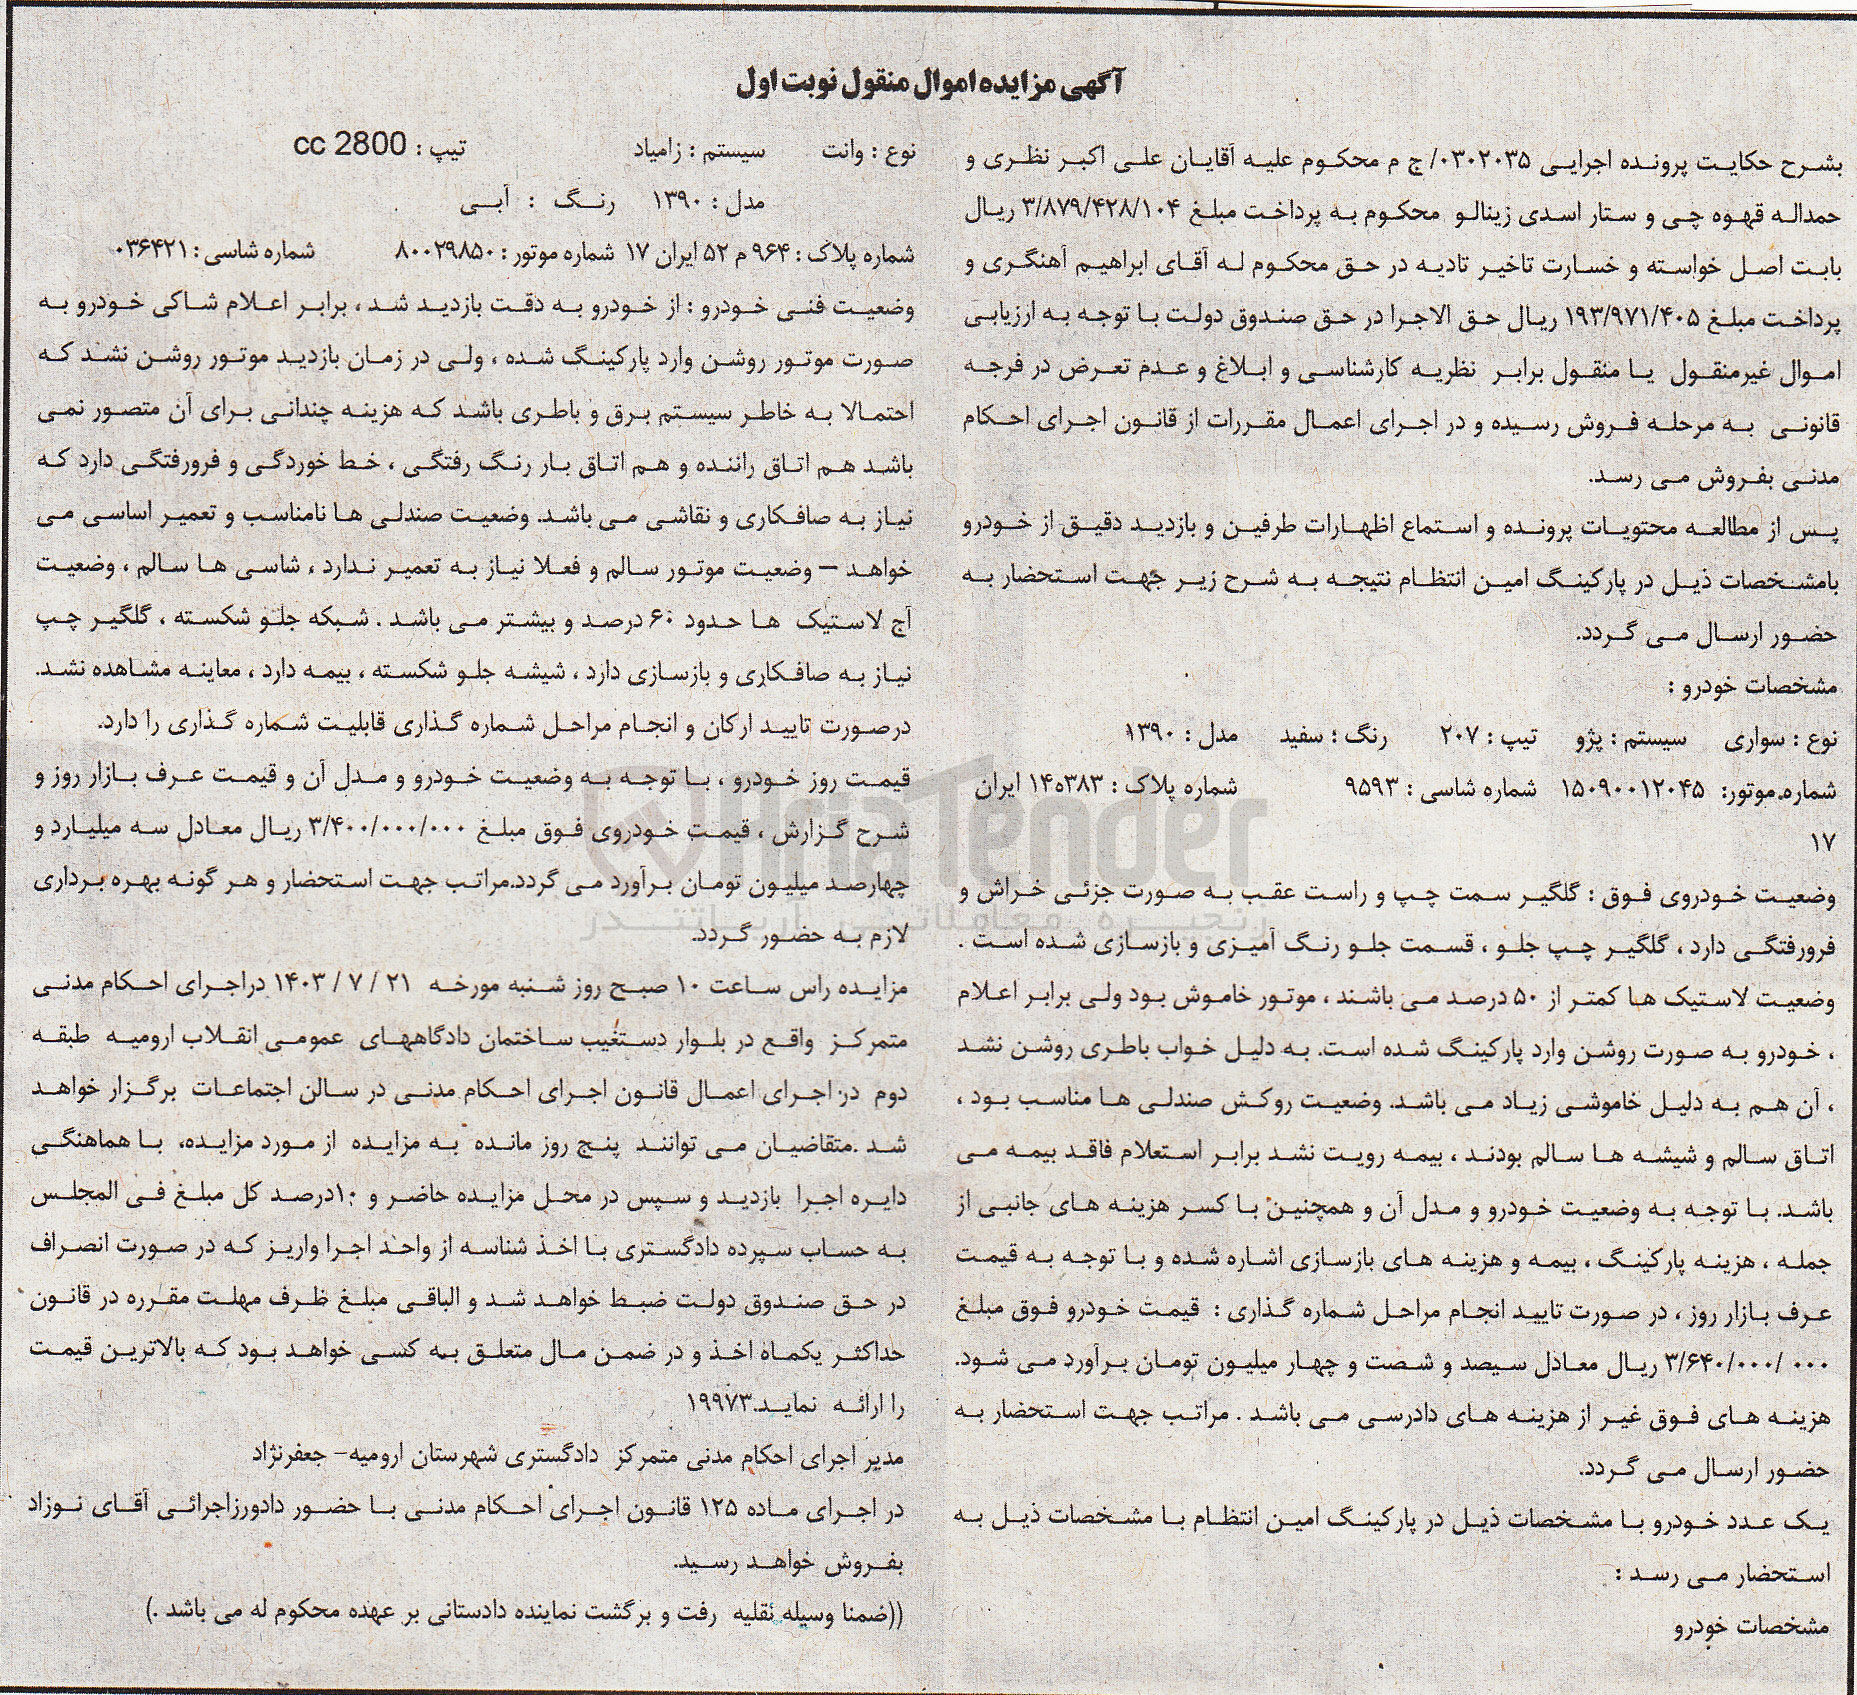 آگهی مزایده اموال منقول نوبت اول
بشرح حکایت پرونده اجرایی ۰۳۰۲۰۳۵/ ج م محکوم علیه آقایان علی اکبر نظری و
حمداله قهوه چی و ستار اسدی زینالو محکوم به پرداخت مبلغ ۳/۸۷۹/۴۲۸/۱۰۴ ریال
بابت اصل خواسته و خسارت تاخیر تادیه در حق محکوم له آقای ابراهیم آهنگری و
پرداخت مبلغ ۱۹۳/۹۷۱/۴۰۵ ریال حق الاجرا در حق صندوق دولت با توجه به ارزیابی
اموال غیرمنقول یا منقول برابر نظریه کارشناسی و ابلاغ و عدم تعرض در فرجه
قانونی به مرحله فروش رسیده و در اجرای اعمال مقررات از قانون اجرای احکام
مدنی بفروش می رسد.
پس از مطالعه محتویات پرونده و استماع اظهارات طرفین و بازدید دقیق از خودرو
بامشخصات ذیل در پارکینگ امین انتظام نتیجه به شرح زیر جهت استحضار به
حضور ارسال می گردد.
مشخصات خودرو :
نوع : سواری سیستم : پژو تیپ : ۲۰۷ رنگ : سفید مدل : ۱۳۹۰
شماره موتور: ۱۵۰۹۰۰۱۲۰۴۵ شماره شاسی : ۹۵۹۳ شماره پلاک : ۳۸۳ه۱۴ ایران
۱۷
وضعیت خودروی فوق : گلگیر سمت چپ و راست عقب به صورت جزئی خراش و
فرورفتگی دارد ، گلگیر چپ جلو ، قسمت جلو رنگ آمیزی و بازسازی شده است .
وضعیت لاستیک ها کمتر از ۵۰ درصد می باشند ، موتور خاموش بود ولی برابر اعلام
، خودرو به صورت روشن وارد پارکینگ شده است. به دلیل خواب باطری روشن نشد
، آن هم به دلیل خاموشی زیاد می باشد. وضعیت روکش صندلی ها مناسب بود ،
اتاق سالم و شیشه ها سالم بودند ، بیمه رویت نشد برابر استعلام فاقد بیمه می
باشد. با توجه به وضعیت خودرو و مدل آن و همچنین با کسر هزینه های جانبی از
جمله ، هزینه پارکینگ ، بیمه و هزینه های بازسازی اشاره شده و با توجه به قیمت
عرف بازار روز ، در صورت تایید انجام مراحل شماره گذاری : قیمت خودرو فوق مبلغ
۳/۶۴۰/۰۰۰/ ۰۰۰ ریال معادل سیصد و شصت و چهار میلیون تومان برآورد می شود.
هزینه های فوق غیر از هزینه های دادرسی می باشد . مراتب جهت استحضار به
حضور ارسال می گردد.
یک عدد خودرو با مشخصات ذیل در پارکینگ امین انتظام با مشخصات ذیل به
استحضار می رسد :
مشخصات خودرو
نوع : وانت سیستم : زامیاد تیپ : 2800 cc
مدل : ۱۳۹۰ رنگ : آبی
شماره پلاک : ۹۶۴ م ۵۲ ایران ۱۷ شماره موتور : ۸۰۰۲۹۸۵۰ شماره شاسی : ۰۳۶۴۲۱
وضعیت فنی خودرو : از خودرو به دقت بازدید شد ، برابر اعلام شاکی خودرو به
صورت موتور روشن وارد پارکینگ شده ، ولی در زمان بازدید موتور روشن نشد که
احتمالا به خاطر سیستم برق و باطری باشد که هزینه چندانی برای آن متصور نمی
باشد هم اتاق راننده و هم اتاق بار رنگ رفتگی ، خط خوردگی و فرورفتگی دارد که
نیاز به صافکاری و نقاشی می باشد. وضعیت صندلی ها نامناسب و تعمیر اساسی می
خواهد – وضعیت موتور سالم و فعلا نیاز به تعمیر ندارد ، شاسی ها سالم ، وضعیت
آج لاستیک ها حدود ۶۰ درصد و بیشتر می باشد . شبکه جلو شکسته ، گلگیر چپ
نیاز به صافکاری و بازسازی دارد ، شیشه جلو شکسته ، بیمه دارد ، معاینه مشاهده نشد.
درصورت تایید ارکان و انجام مراحل شماره گذاری قابلیت شماره گذاری را دارد.
قیمت روز خودرو ، با توجه به وضعیت خودرو و مدل آن و قیمت عرف بازار روز و
شرح گزارش ، قیمت خودروی فوق مبلغ ۳/۴۰۰/۰۰۰/۰۰۰ ریال معادل سه میلیارد و
چهارصد میلیون تومان برآورد می گردد.مراتب جهت استحضار و هر گونه بهره برداری
لازم به حضور گردد.
مزایده راس ساعت ۱۰ صبح روز شنبه مورخه ۲۱ / ۷ / ۱۴۰۳ دراجرای احکام مدنی
متمرکز واقع در بلوار دستغیب ساختمان دادگاههای عمومی انقلاب ارومیه طبقه
دوم در اجرای اعمال قانون اجرای احکام مدنی در سالن اجتماعات برگزار خواهد
شد .متقاضیان می توانند پنج روز مانده به مزایده از مورد مزایده، با هماهنگی
دایره اجرا بازدید و سپس در محل مزایده حاضر و ۱۰درصد کل مبلغ فی المجلس
به حساب سپرده دادگستری با اخذ شناسه از واحد اجرا واریز که در صورت انصراف
در حق صندوق دولت ضبط خواهد شد و الباقی مبلغ ظرف مهلت مقرره در قانون
حداکثر یکماه اخذ و در ضمن مال متعلق به کسی خواهد بود که بالاترین قیمت
را ارائه نماید.۱۹۹۷۳
مدیر اجرای احکام مدنی متمرکز دادگستری شهرستان ارومیه- جعفرنژاد
در اجرای ماده ۱۲۵ قانون اجرای احکام مدنی با حضور دادورزاجرائی آقای نوزاد
بفروش خواهد رسید.
((ضمنا وسیله نقلیه رفت و برگشت نماینده دادستانی بر عهده محکوم له می باشد .)
AriaTender